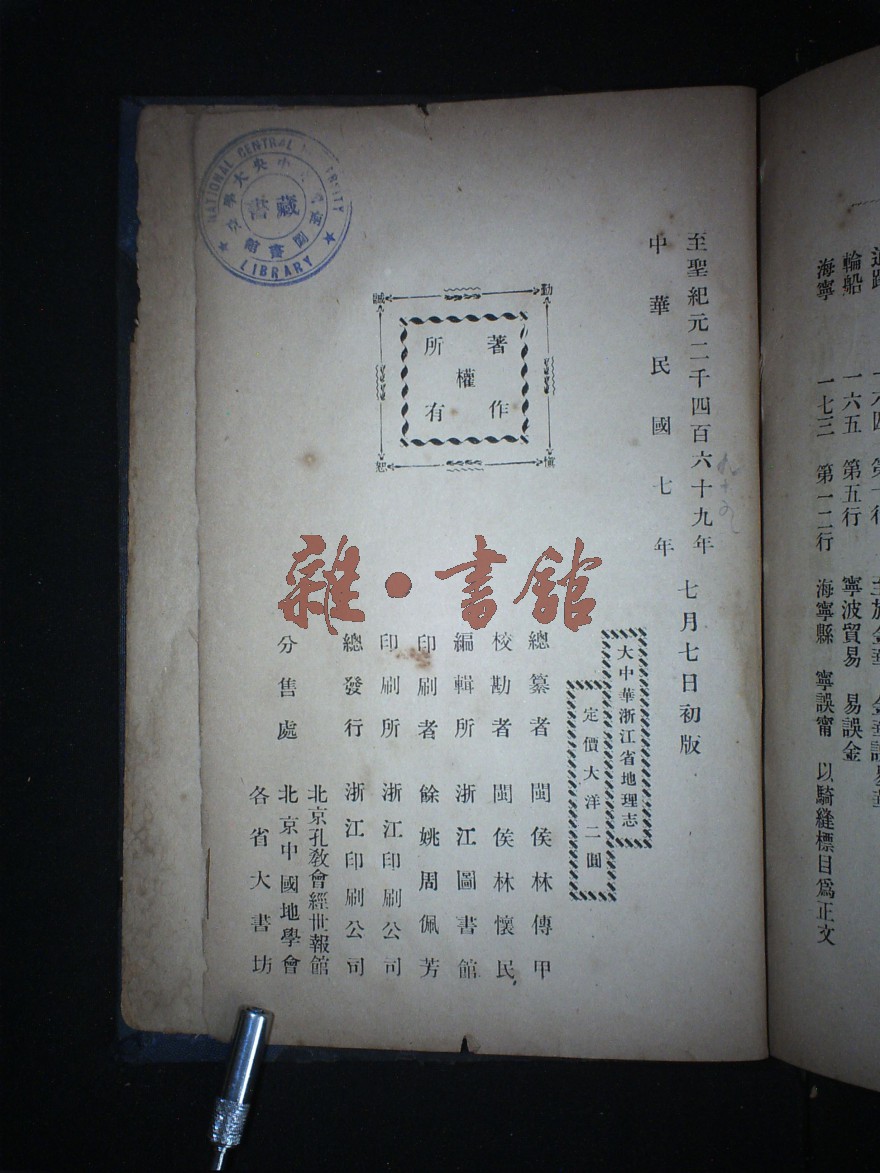 輪船 一六五 第五行 寧波貿易 易誤金
海寧 一七三 第一二行 海寧縣 寧誤甯 以騎縫標目爲正文
至聖紀元二千四百六十九年
中華民國七年
七月七日初版
大中華浙江省地理志
定價大洋二圓
著作權所有
勤
慎
誠
恕
總纂者 閩侯林傳甲
校勘者 閩侯林懷民
編輯所 浙江圖書館
印刷者 餘姚周佩芳
印刷所 浙江印刷公司
總發行 浙江印刷公司
北京孔敎會經世報館
分售處 北京中國地學會
各省大書坊
NATIONAL CENTRAL
LIBRARY
中央大學
圖書館
藏書
雜·書館